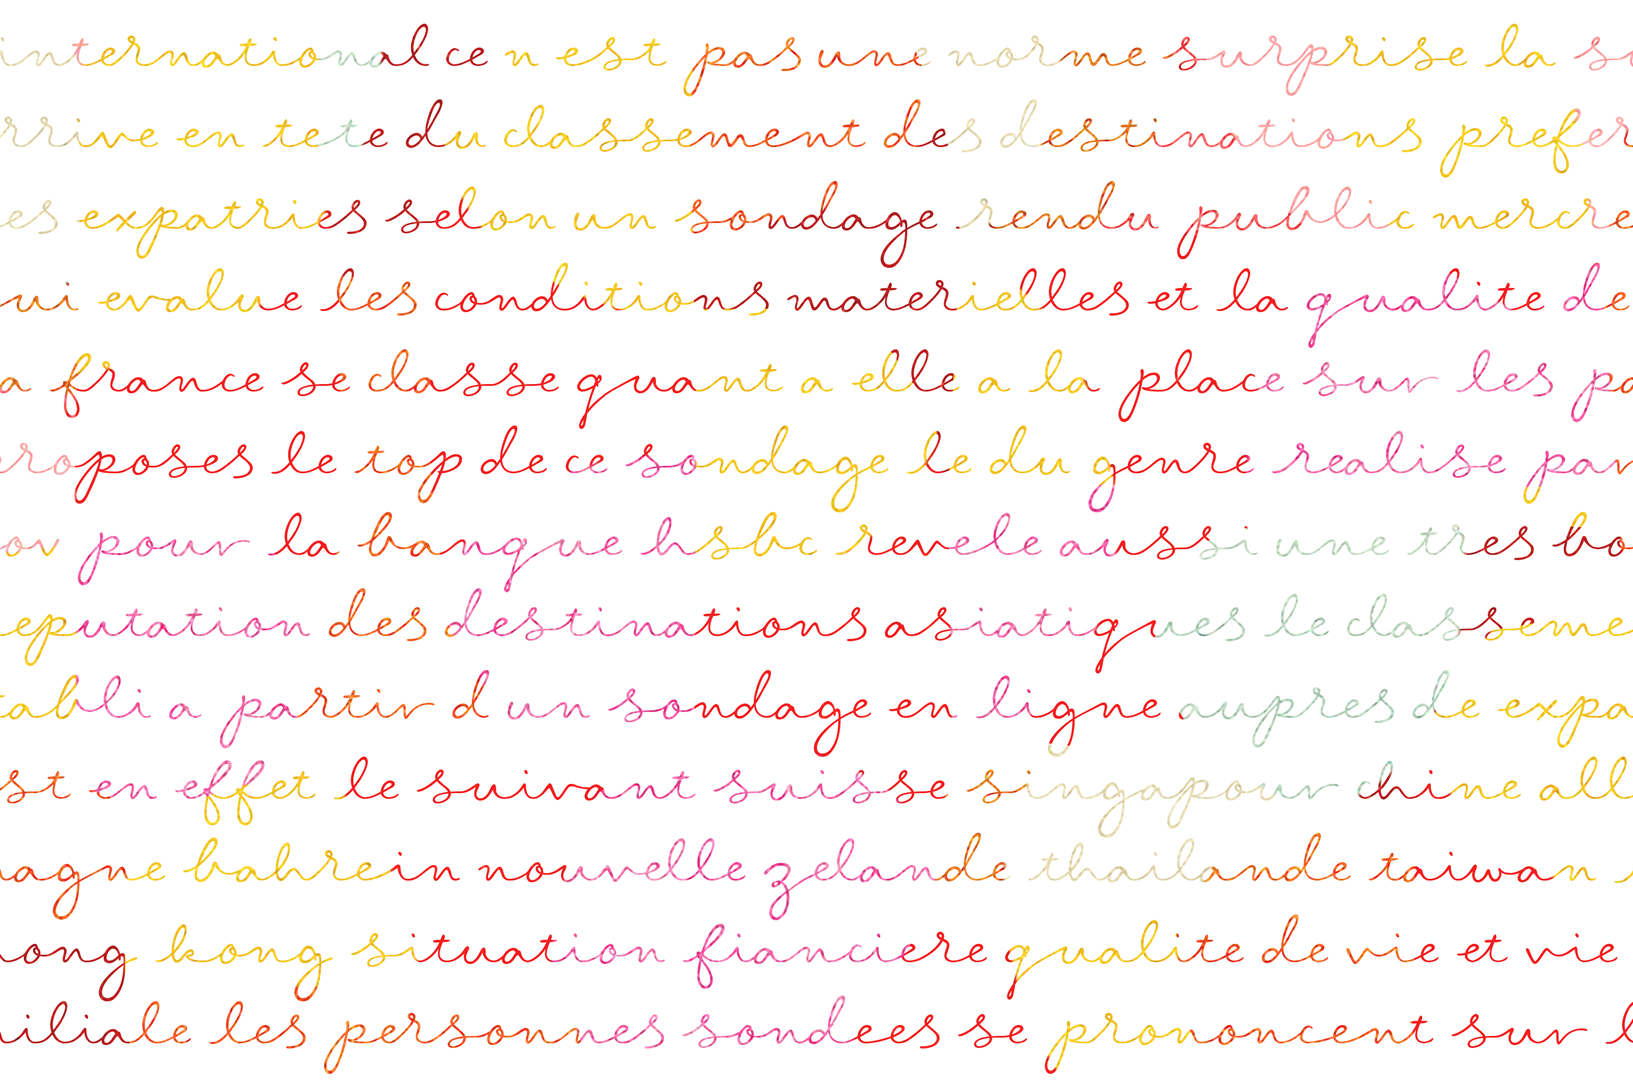 international ce n est pas une norme surprise la su
rrive en tete du classement des destinations prefer
es expatries selon un sondage rendu public mercre
ui evalue les conditions materielles et la qualite de
a france se classe quant a elle a la place sur les pa
roposes le top de ce sondage le du genre realise par
ov pour la banque hsbc revele aussi une tres bo
eputation des destinations asiatiques le classeme
tabli a partir d un sondage en ligne aupres de expa
st en effet le suivant suisse singapour chine all
agne bahrein nouvelle zelande thailande taiwan
ong kong situation fianciere qualite de vie et vie
iliale les personnes sondees se prononcent sur l